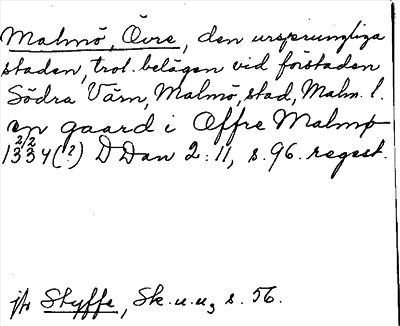 Malmö, Övre, den ursprungliga
staden, trol. belägen vid förstaden
Södra Värn, Malmö, stad, Malm. l.
en gaard i Offre Malmø
22/2 1334(?) DDan 2:11, s. 96. regest.
jfr Styffe, Sk. u. u., s. 56.